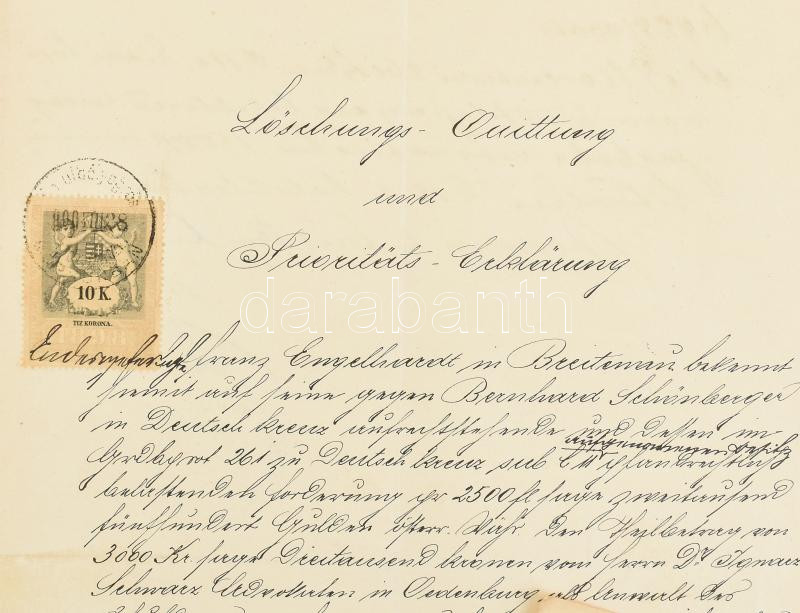 Löschungs - Quittung
und
Prioritäts - Erklärung
10 K.
TIZ KORONA.
darabanth
Franz Engelhardt in Breitenau bekennt
hiemit auf seine gegen Bernhard Schönberger
in Deutschkreuz aufrechtstehende und dessen im
Besitz
Grdb. prot 261 zu Deutschkreuz sub C pfandrechtlich
belastenden Forderung pr 2500 fl sage zweitausend
fünfhundert Gulden österr. Währ. den Theilbetrag von
3000 Kr. sage Dreitausend Kronen vom Herrn Dr. Ignacz
Schwarz Advokaten in Oedenburg als Anwalt des